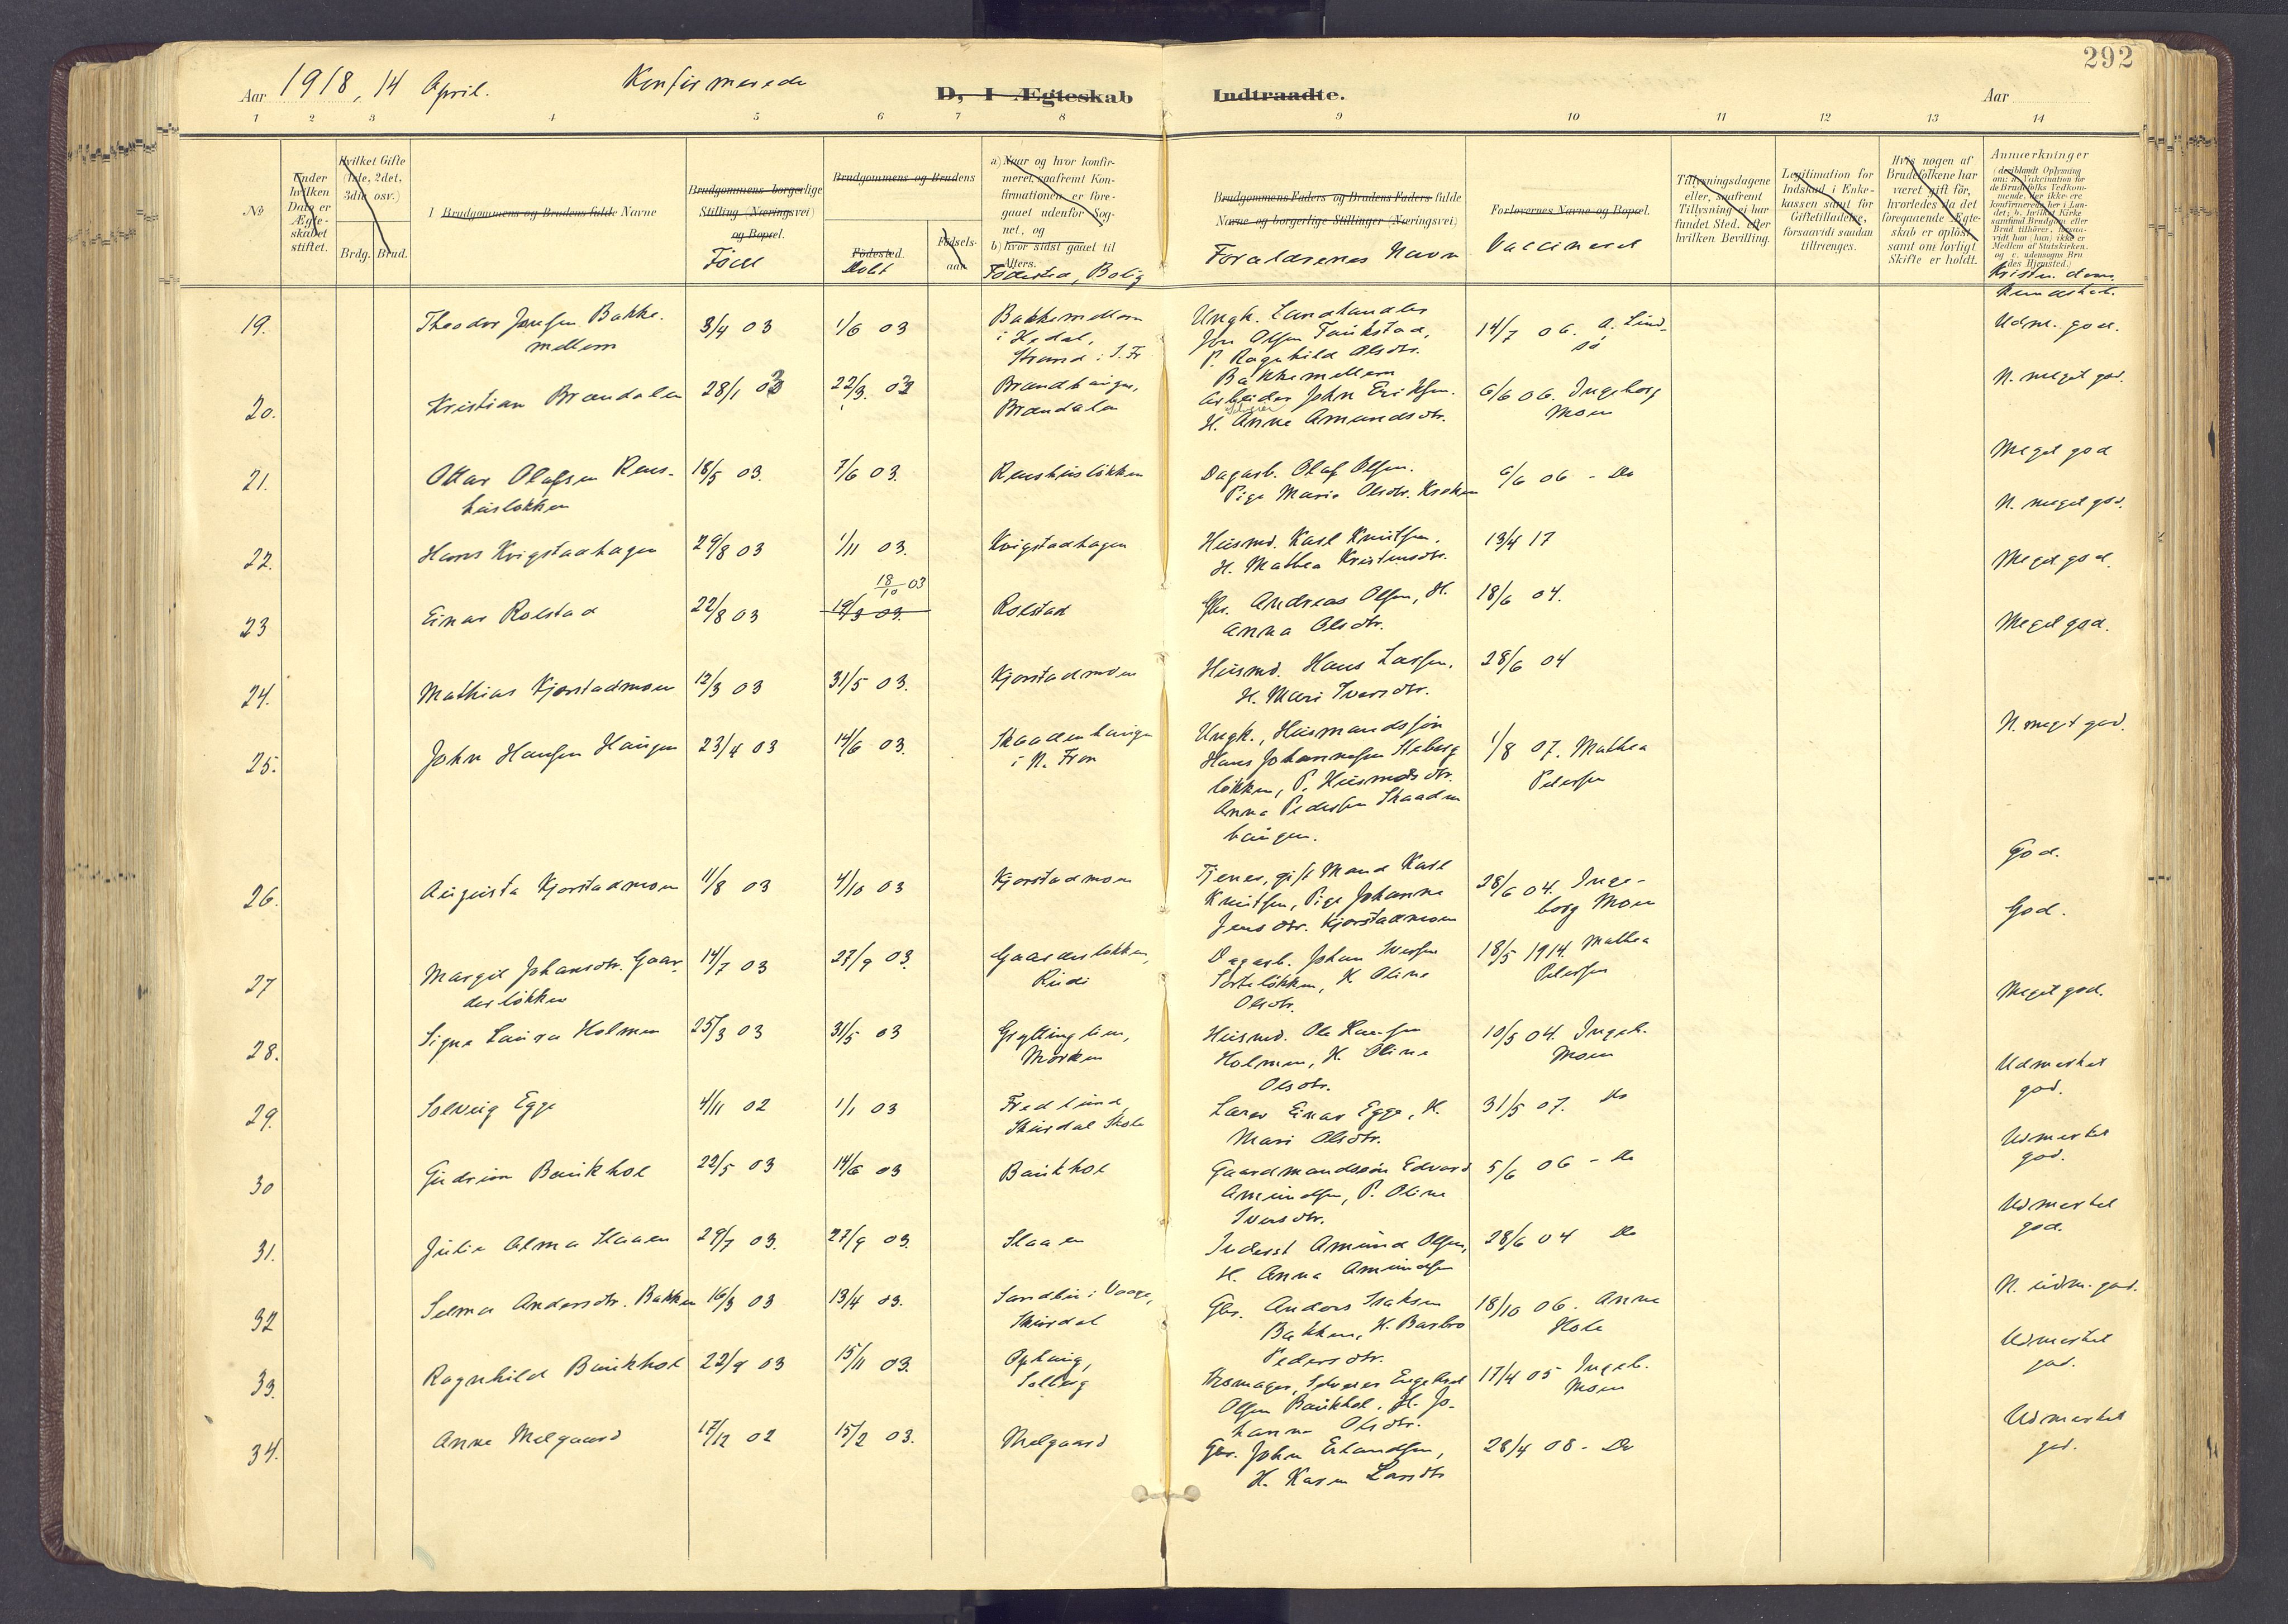 292
Aar 1918, 14 April. Konfirmerede D, I Ægteskab Indtraadte. Aar
1 2 3 4 5 6 7 8 9 10 11 12 13 14
№
Under hvilken Dato er Ægteskabet stiftet.
Hvilket Gifte (1ste, 2det, 3die osv.)
Brdg. Brud.
1 Brudgommens og Brudens fulde Navne
Brudgommens borgerlige Stilling (Næringsvei) og Bopæl.
Født
Brudgommens og Brudens
Fødested.
Døbt
Fødselsaar
a) Naar og hvor konfirmeret, saafremt Konfirmationen er foregaaet udenfor Sognet, og
b) hvor sidst gaaet til Alters.
Fødested, Bolig
Brudgommens Faders og Brudens Faders fulde Navne og borgerlige Stillinger (Næringsvei)
Forældrenes Navn
Forlovernes Navne og Bopæl.
Vaccineret
Tillysningsdagene eller, saafremt Tillysning ei har fundet Sted, efter hvilken Bevilling.
Legitimation for Indskud i Enkekassen samt for Giftetilladelse, forsaavidt saadan tiltrænges.
Hvis nogen af Brudefolkene har været gift før, hvorledes da det foregaaende Ægteskab er opløst, samt om lovligt Skifte er holdt.
Anmærkninger
(deriblandt Oplysning om: a. Vaccination for de Brudefolks Vedkommende, der ikke ere konfirmerede her i Landet; b. hvilket Kirkesamfund Brudgom eller Brud tilhører, forsaavidt han (hun) ikke er Medlem af Statskirken, og c. udensogns Brudes Hjemsted.)
Kristendomskundskab.
19. Theodor Jonsen Bakke- 3/4 03 1/6 03 Bakkemellom Ungk. Landhandler 14/7 06. A. Lind- Udm. god.
mellom i Hedal, Jon Olsen Taukstad, sø
Strand i S. Fr P. Ragnhild Olsdtr.
Bakkemellom
20. Kristian Brændalen 28/1 03 22/3 03 Brandhaugen, Arbeider John Eriksen. 6/6 06. Ingeborg N. meget god.
Brændalen H. Anne Amundsdtr. Moen
21. Ottar Olafsen Rens- 18/5 03. 7/6 03. Renshusløkken Dagarb. Olaf Olsen. 6/6 06 - Do Meget god
husløkken Pige Marie Olsdtr. Kroken
22. Hans Kvigstadhagen 29/8 03 1/11 03. Kvigstadhagen Husmd. Karl Knutsen. 13/4 17 N. meget god.
H. Mathea Kristensdtr.
18/10 03
23 Einar Rolstad 22/8 03 19/9 03. Rolstad Gbr. Andreas Olsen, H. 18/6 04. Meget god.
Anna Olsdtr.
24. Mathias Kjorstadmoen 12/3 03 31/5 03. Kjorstadmoen Husmd. Hans Larsen. 28/6 04 Meget god.
H. Mari Iversdtr.
25. John Hansen Haugen 23/4 03 14/6 03. Skaadenhaugen Ungk., Husmandssøn 1/8 07. Mathea N. meget god.
i N. Fron Hans Johannessen Steberg Petersen
løkken, P. Husmdsdtr.
Anna Pedersen Skaaden
haugen.
26. Augusta Kjorstadmoen 11/8 03 4/10 03 Kjorstadmoen Tjener, gift Mand Karl 28/6 04. Inge- God.
Knutsen, Pige Johanne borg Moen
Jensdtr. Kjorstadmoen
27 Margit Johansdtr. Gaar- 14/7 03 27/9 03. Gaarderløkken, Dagarb. Johan Iversen 18/5 1914. Mathea God.
derløkken Rudi Sorteløkken, H. Oline Petersen
Olsdtr.
28. Signe Laura Holmen 25/3 03 31/5 03 Gryttinglien, Husmd. Ole Hansen 10/5 04. Ingeb. Meget god.
Morken Holmen, H. Oline Moen
Olsdtr.
29. Solveig Egge 4/11 02 1/1 03 Fredlund, Lærer Einar Egge, H. 31/5 07. Do Udmerket
Skurdal Skole Mari Olsdtr. god.
30 Gudrun Baukhol 22/5 03 14/6 03 Baukhol Gaardmandssøn Edvard 5/6 06 - Do Udmerket
Amundsen, P. Oline god.
Iversdtr.
31. Julie Alma Slaaen 29/7 03. 27/9 03. Slaaen Inderst Amund Olsen, 28/6 04 Do Udmerket
H. Anna Amundsen god.
32 Selma Andersdtr. Bakken 16/3 03 13/4 03. Sandbu i Vaage, Gbr. Anders Isaksen 18/10 06. Anne N. udm. god.
Skurdal Bakken, H. Barbro Hole
Pedersdtr.
33. Ragnhild Baukhol 22/9 03 15/11 03. Ophaug, Skomager, Selveier Engebret 17/4 05 Ingeb. Udmerket
Solberg Olsen Baukhol, H. Jo- Moen god.
hanne Olsdtr.
34. Anne Melgaard 17/12 02 15/2 03. Melgaard Gbr. John Erlandsen, 28/4 08 - Do Udmerket
H. Karen Larsdtr god.